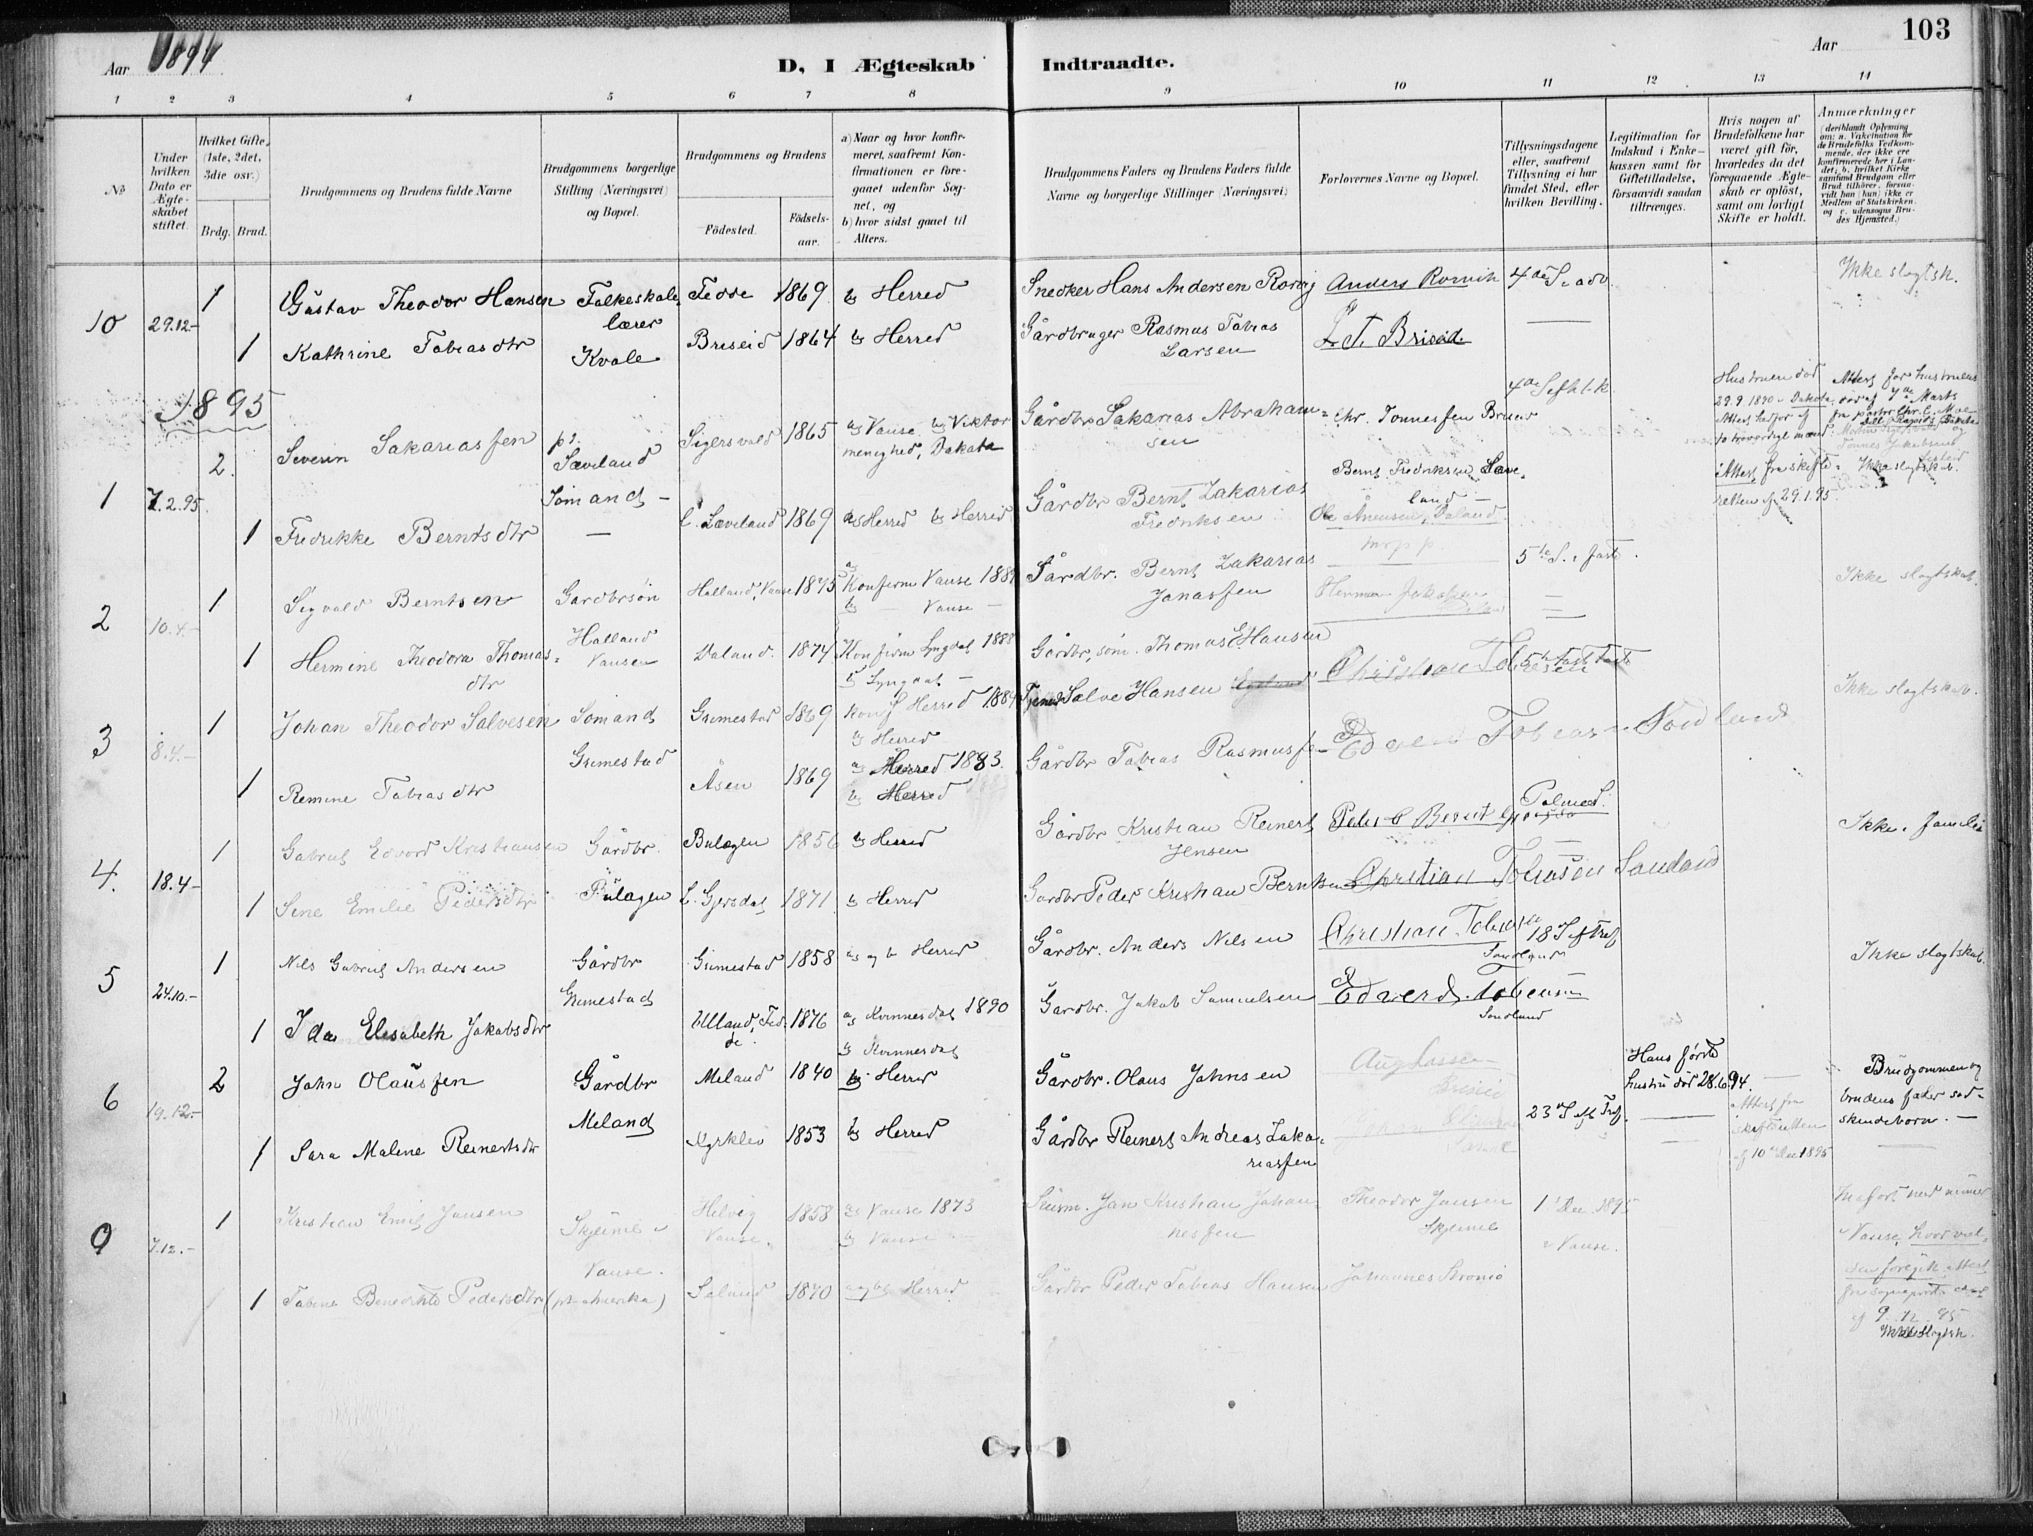 Aar 1894
D, I Ægteskab Indtraadte.
Aar 103
1 2 3 4 5 6 7 8 9 10 11 12 13 14
No
Under hvilken Dato er Ægteskabet stiftet.
Hvilket Gifte, (1ste, 2det, 3die osv.)
Brdg. Brud.
Brudgommens og Brudens fulde Navne
Brudgommens borgerlige Stilling (Næringsvei) og Bopæl.
Brudgommens og Brudens
Födested. Födsels-aar.
a) Naar og hvor konfirmeret, saafremt Konfirmationen er foregaaet udenfor Sognet, og
b) hvor sidst gaaet til Alters.
Brudgommens Faders og Brudens Faders fulde Navne og borgerlige Stillinger (Næringsvei)
Forlovernes Navne og Bopæl.
Tillysningsdagene eller, saafremt Tillysning ei har fundet Sted, efter hvilken Bevilling.
Legitimation for Indskud i Enkekassen samt for Giftetilladelse, forsaavidt saadan tiltrænges.
Hvis nogen af Brudefolkene har været gift för, hvorledes da det foregaaende Ægteskab er oplöst, samt om lovligt Skifte er holdt.
Anmærkninger
(deriblandt Oplysning om: a. Vakcination for de Brudefolks Vedkommende, der ikke ere konfirmerede her i Landet; b. hvilket Kirkesamfund Brudgom eller Brud tilhörer, forsaavidt han (hun) ikke er Medlem af Statskirken, og c. udensogns Brudes Hjemsted.)
10 29.12- 1 Gustav Theodor Hansen Folkeskolelærer Fedde 1869 b, Herred Snedker Hans Andersen Rorvig Anders Rorvik 4de S. i adv. Ikke slægtsk.
1 Kathrine Tobiasdtr Kvale Briseid 1864 b, Herred Gårdbruger Rasmus Tobias Larsen T. Briseid
1895
1 7.2.95. 2. Severin Sakariassen pt. Sæveland Sömand Sigersvold 1865 a, Vanse b, Viktor menighed, Dakota Gårdbr Sakarias Abrahamsen Chr. Tonnessen 4de S ef h.t.k. Hustruen död 29.9.1890 i Dakota
Attest fra skifteretten af 29.1.95. Ikke slægtskab.
1 Fredrikke Berntsdtr — L. Sæveland 1869 a, Herred b, Herred Gårdbr Bernt Zakarias Fredriksen Bernt Fredriksen Sæveland
2 10.4- 1 Sigvald Berntsen Gardbrsön Halland, Vanse 1875 a, Konfirm Vanse b, Vanse Gårdbr. Bernt Zakarias Jonassen 5te S. i faste Ikke slægtskab.
1 Hermine Theodora Thomasdtr Halland Vansen Daland 1874 Konfirm Lyngdal 1888 b, Lyngdal Gårdbr, söm. Thomas E Hansen
3 8.4- 1 Johan Theodor Salvesen Sömand Grimestad 1869 konf Herred 1884 b, Herred Tjener Salve Hansen Christian Tobiasen Ikke slægtskab.
1 Remine Tobiasdtr Grimestad Åsen 1869 a, Herred 1883. b, Herred Gårdbr Tobias Rasmussen Edverd Tobiasen Sandland
4. 18.4- 1 Gabriel Edvard Kristiansen Gårdbr. Bulægen 1856 b, Herred Gårdbr Kristian Reinert Jensen Palmes. Ikke i familie
1 Sene Emilie Pedersdtr Bulagen L. Gjersdal 1871 b, Herred Gårdbr Peder Kristian Berntsen Christian Tobiasen Sandland
5 24.10.- 1 Nils Gabriel Andersen Gårdbr Grimestad Grimestad 1858 a, og b Herred Gårdbr. Anders Nilsen Christian Tobiasen Sandland 18 S ef Tref Ikke slægtskab.
1 Ida Elisabeth Jakobsdtr Ulland, Fedde 1876 a, Kvinnesdal 1890 b, Kvinnesdal Gårdbr. Jakob Samuelsen Edverd Tobiassen Sandland
6 19.12.- 2 John Olaussen Gårdbr Meland Meland 1840 b, Herred Gårdbr. Olaus Johnsen 23 S eft Tref. Hans første hustru död 28.6.94.
Attest fra skifteretten af 10 Dec 1895
Brudgommen og brudens fader sødskendebørn.
1 Sara Malene Reinertsdtr 1853 b, Herred Gårdbr Reinert Andreas Zakariassen
9 7.12.- 1 Kristian Emil Jansen Skjeime i Vanse. Helvig Vanse. 1858 a, Vanse 1873 b, Vanse Jan Kristian Johannessen Theodor Jansen Skjeime 1 Dec 1895 i Vanse.
1 Tabine Benedikte Pedersdtr (pt Amerika) 1870 a og b, Herred Gårdbr Peder Tobias Hansen Johannes
Vanse, hvor vielsen foregik, attest fra sogneprest af 9.12.95
Ikke slægtsk.